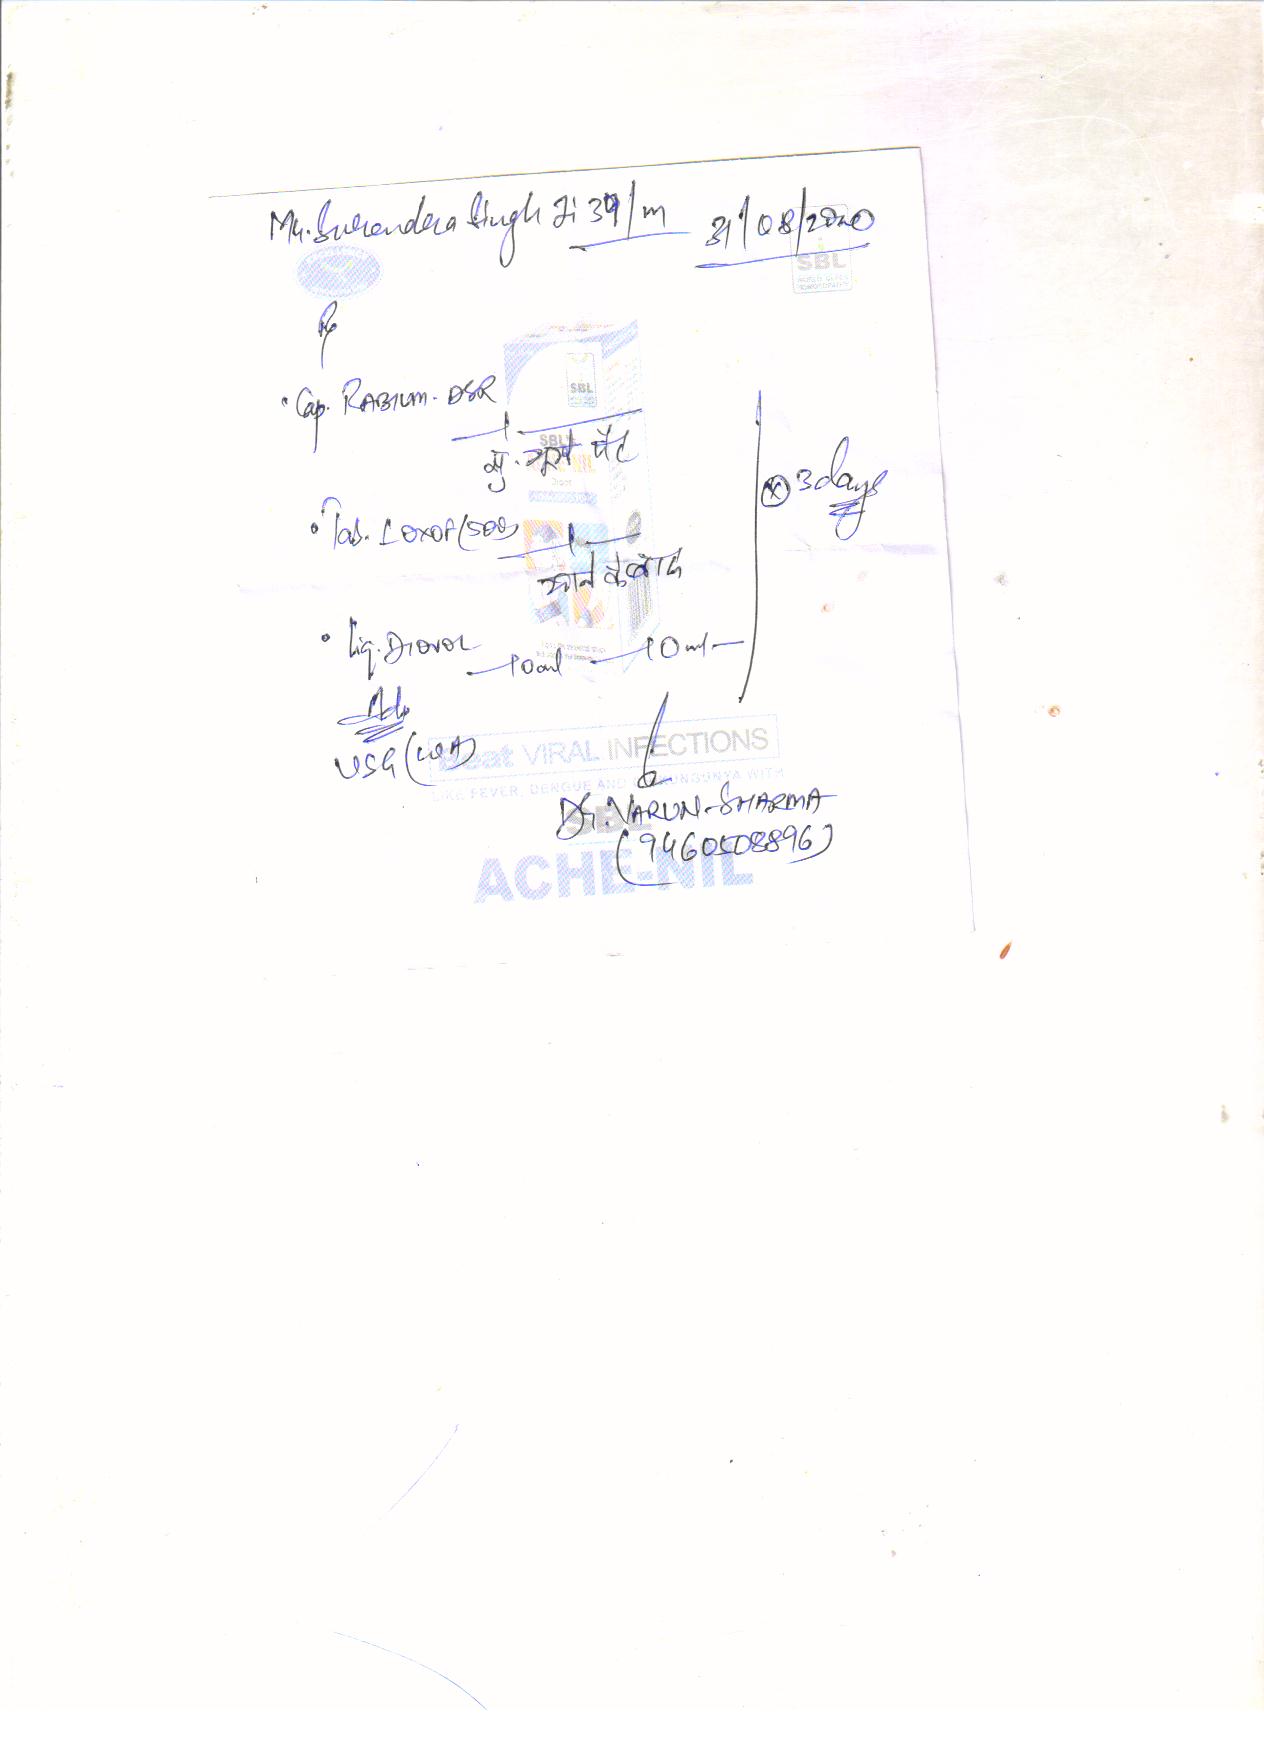 Mr. Surendera Singh Ji 39/m 31/08/2020
SBL
Rx
SBL
• Cap. RABIUM-DSR 1
SBL
सु. भूखे पेट
Drops
• Tab. LOXOF (500) 1
खाने के बाद
(x) 3 days
• Liq. DIOVOL 10ml 10ml
Adv
USG (W/A)
Beat VIRAL INFECTIONS
LIKE FEVER, DENGUE AND CHIKUNGUNYA WITH
Dr. VARUN-SHARMA
SBL
(9460508896)
ACHE-NIL